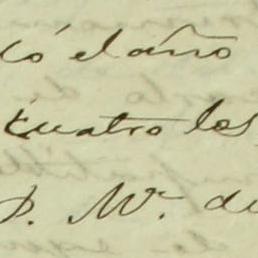 có el año
cuatro los
P. Mr. de